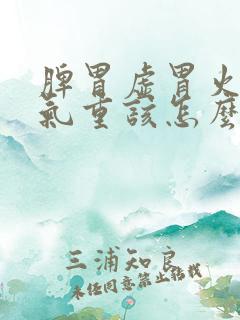 脾胃虚胃火
氣重該怎麼
三浦知良
未经同意禁止转载